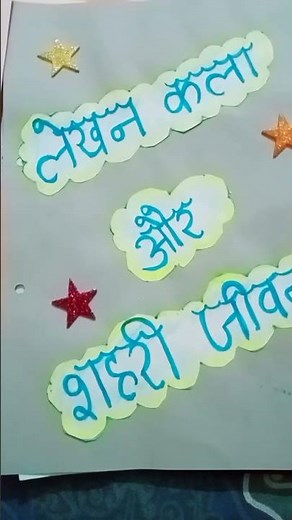 लेखन कला
और
शहरी जीवन